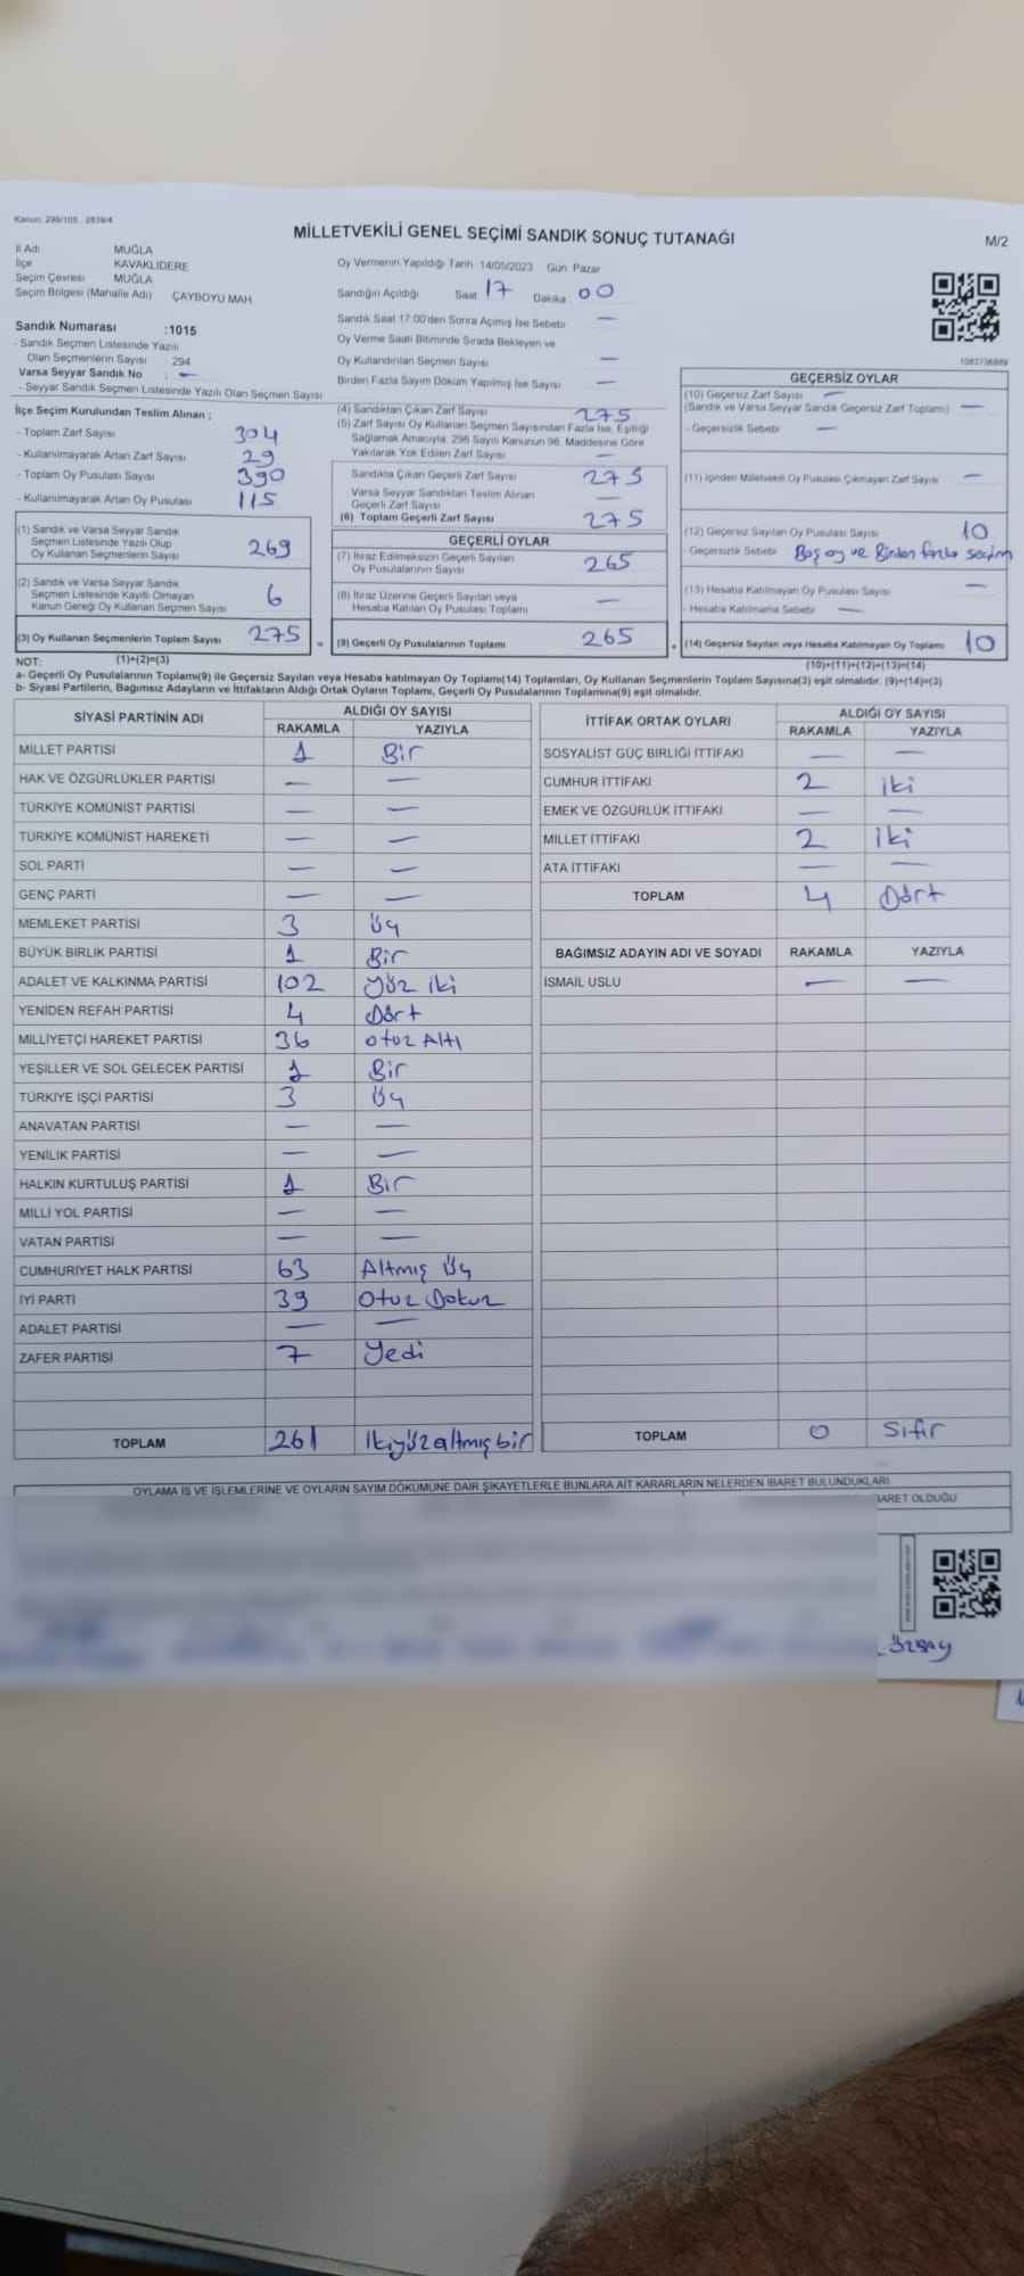 Kanun: 298/105 , 2839/4
MİLLETVEKİLİ GENEL SEÇİMİ SANDIK SONUÇ TUTANAĞI
M/2
İl Adı MUĞLA
İlçe KAVAKLIDERE
Seçim Çevresi MUĞLA
Seçim Bölgesi (Mahalle Adı) ÇAYBOYU MAH
Sandık Numarası :1015
- Sandık Seçmen Listesinde Yazılı
Olan Seçmenlerin Sayısı 294
Varsa Seyyar Sandık No : —
- Seyyar Sandık Seçmen Listesinde Yazılı Olan Seçmen Sayısı
Oy Vermenin Yapıldığı Tarih 14/05/2023 Gün: Pazar
Sandığın Açıldığı Saat 17 Dakika : 00
Sandık Saat 17:00'den Sonra Açılmış İse Sebebi —
Oy Verme Saati Bitiminde Sırada Bekleyen ve
Oy Kullandırılan Seçmen Sayısı —
Birden Fazla Sayım Döküm Yapılmış İse Sayısı —
İlçe Seçim Kurulundan Teslim Alınan ;
- Toplam Zarf Sayısı 304
- Kullanılmayarak Artan Zarf Sayısı 29
- Toplam Oy Pusulası Sayısı 390
- Kullanılmayarak Artan Oy Pusulası 115
(1) Sandık ve Varsa Seyyar Sandık
Seçmen Listesinde Yazılı Olup
Oy Kullanan Seçmenlerin Sayısı 269
(2) Sandık ve Varsa Seyyar Sandık
Seçmen Listesinde Kayıtlı Olmayan
Kanun Gereği Oy Kullanan Seçmen Sayısı 6
(3) Oy Kullanan Seçmenlerin Toplam Sayısı 275 =
(1)+(2)=(3)
(4) Sandıktan Çıkan Zarf Sayısı 275
(5) Zarf Sayısı Oy Kullanan Seçmen Sayısından Fazla İse, Eşitliği
Sağlamak Amacıyla, 298 Sayılı Kanunun 98. Maddesine Göre
Yakılarak Yok Edilen Zarf Sayısı —
Sandıkta Çıkan Geçerli Zarf Sayısı 275
Varsa Seyyar Sandıktan Teslim Alınan
Geçerli Zarf Sayısı —
(6) Toplam Geçerli Zarf Sayısı 275
GEÇERLİ OYLAR
(7) İtiraz Edilmeksizin Geçerli Sayılan
Oy Pusulalarının Sayısı 265
(8) İtiraz Üzerine Geçerli Sayılan veya
Hesaba Katılan Oy Pusulası Toplamı —
(9) Geçerli Oy Pusulalarının Toplamı 265 +
GEÇERSİZ OYLAR
(10) Geçersiz Zarf Sayısı —
(Sandık ve Varsa Seyyar Sandık Geçersiz Zarf Toplamı) —
- Geçersizlik Sebebi —
(11) İçinden Milletvekili Oy Pusulası Çıkmayan Zarf Sayısı —
(12) Geçersiz Sayılan Oy Pusulası Sayısı 10
- Geçersizlik Sebebi Boş oy ve Birden fazla seçim
(13) Hesaba Katılmayan Oy Pusulası Sayısı —
- Hesaba Katılmama Sebebi —
(14) Geçersiz Sayılan veya Hesaba Katılmayan Oy Toplamı 10
(10)+(11)+(12)+(13)=(14)
NOT:
a- Geçerli Oy Pusulalarının Toplamı(9) ile Geçersiz Sayılan veya Hesaba katılmayan Oy Toplamı(14) Toplamları, Oy Kullanan Seçmenlerin Toplam Sayısına(3) eşit olmalıdır. (9)+(14)=(3)
b- Siyasi Partilerin, Bağımsız Adayların ve İttifakların Aldığı Ortak Oyların Toplamı, Geçerli Oy Pusulalarının Toplamına(9) eşit olmalıdır.
SİYASİ PARTİNİN ADI ALDIĞI OY SAYISI
RAKAMLA YAZIYLA
MİLLET PARTİSİ 1 Bir
HAK VE ÖZGÜRLÜKLER PARTİSİ — —
TÜRKİYE KOMÜNİST PARTİSİ — —
TÜRKİYE KOMÜNİST HAREKETİ — —
SOL PARTİ — —
GENÇ PARTİ — —
MEMLEKET PARTİSİ 3 Üç
BÜYÜK BİRLİK PARTİSİ 1 Bir
ADALET VE KALKINMA PARTİSİ 102 Yüz iki
YENİDEN REFAH PARTİSİ 4 Dört
MİLLİYETÇİ HAREKET PARTİSİ 36 otuz Altı
YEŞİLLER VE SOL GELECEK PARTİSİ 1 Bir
TÜRKİYE İŞÇİ PARTİSİ 3 Üç
ANAVATAN PARTİSİ — —
YENİLİK PARTİSİ — —
HALKIN KURTULUŞ PARTİSİ 1 Bir
MİLLİ YOL PARTİSİ — —
VATAN PARTİSİ — —
CUMHURİYET HALK PARTİSİ 63 Altmış Üç
İYİ PARTİ 39 Otuz Dokuz
ADALET PARTİSİ — —
ZAFER PARTİSİ 7 Yedi
TOPLAM 261 İkiyüzaltmışbir
İTTİFAK ORTAK OYLARI ALDIĞI OY SAYISI
RAKAMLA YAZIYLA
SOSYALİST GÜÇ BİRLİĞİ İTTİFAKI — —
CUMHUR İTTİFAKI 2 iki
EMEK VE ÖZGÜRLÜK İTTİFAKI — —
MİLLET İTTİFAKI 2 İki
ATA İTTİFAKI — —
TOPLAM 4 Dört
BAĞIMSIZ ADAYIN ADI VE SOYADI RAKAMLA YAZIYLA
İSMAİL USLU — —
TOPLAM 0 Sıfır
OYLAMA İŞ VE İŞLEMLERİNE VE OYLARIN SAYIM DÖKÜMÜNE DAİR ŞİKAYETLERLE BUNLARA AİT KARARLARIN NELERDEN İBARET BULUNDUKLARI
BARET OLDUĞU